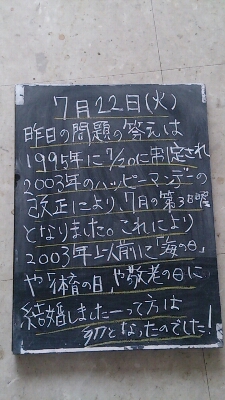 7月22日(火)
昨日の問題の答えは
1995年に7/20に制定され
2003年のハッピーマンデーの
改正により、7月の第3日曜
となりました。これにより
2003年以前に「海の日」
や「体育の日」や敬老の日に
結婚しましたーって方は
となったのでした!